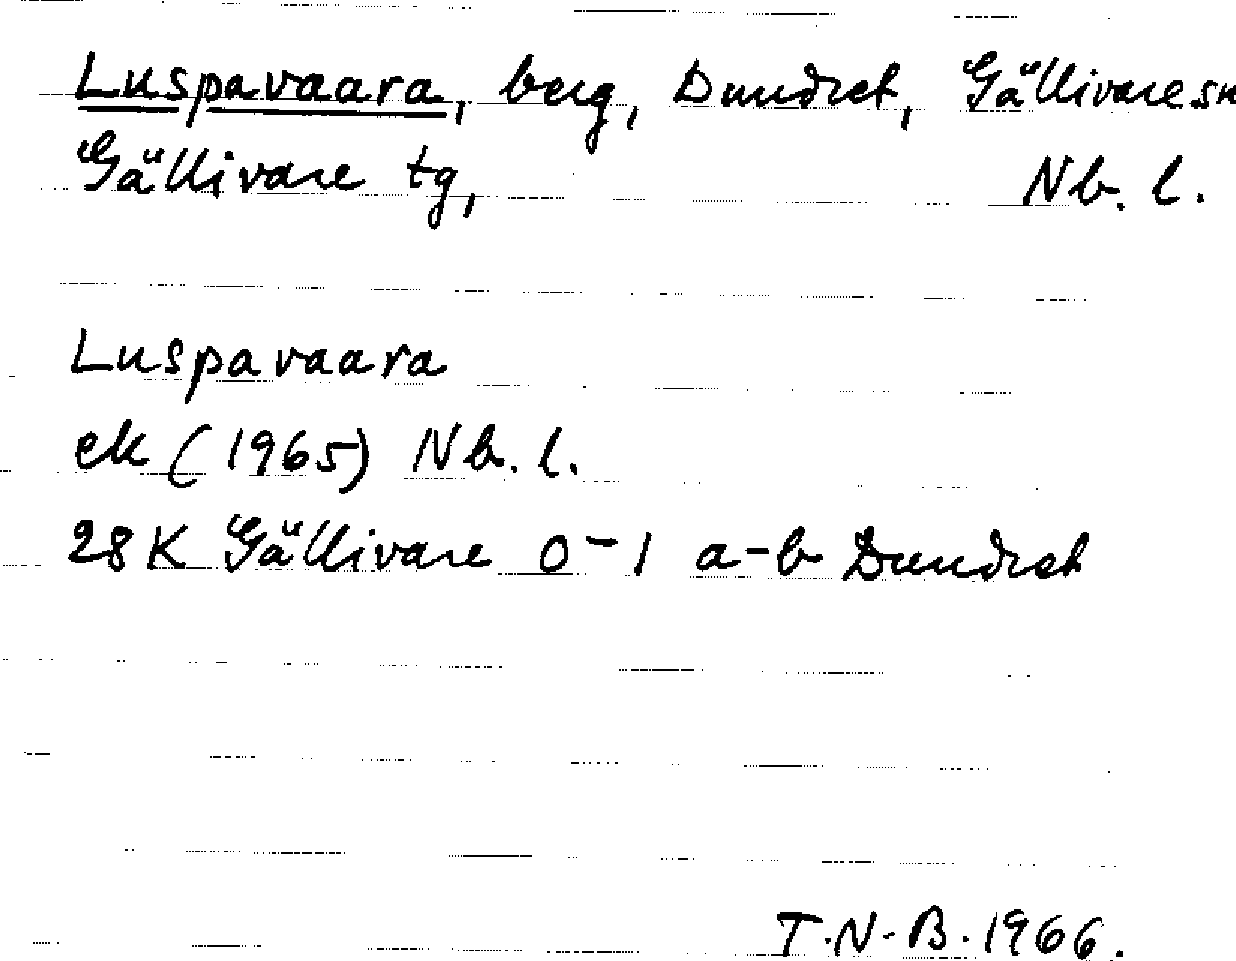 Luspavaara, berg, Dundret, Gällivare sn
Gällivare tg, Nb. l.
Luspavaara
ek (1965) Nb. l.
28 K Gällivare 0-1 a-b Dundret
T.N.B. 1966.